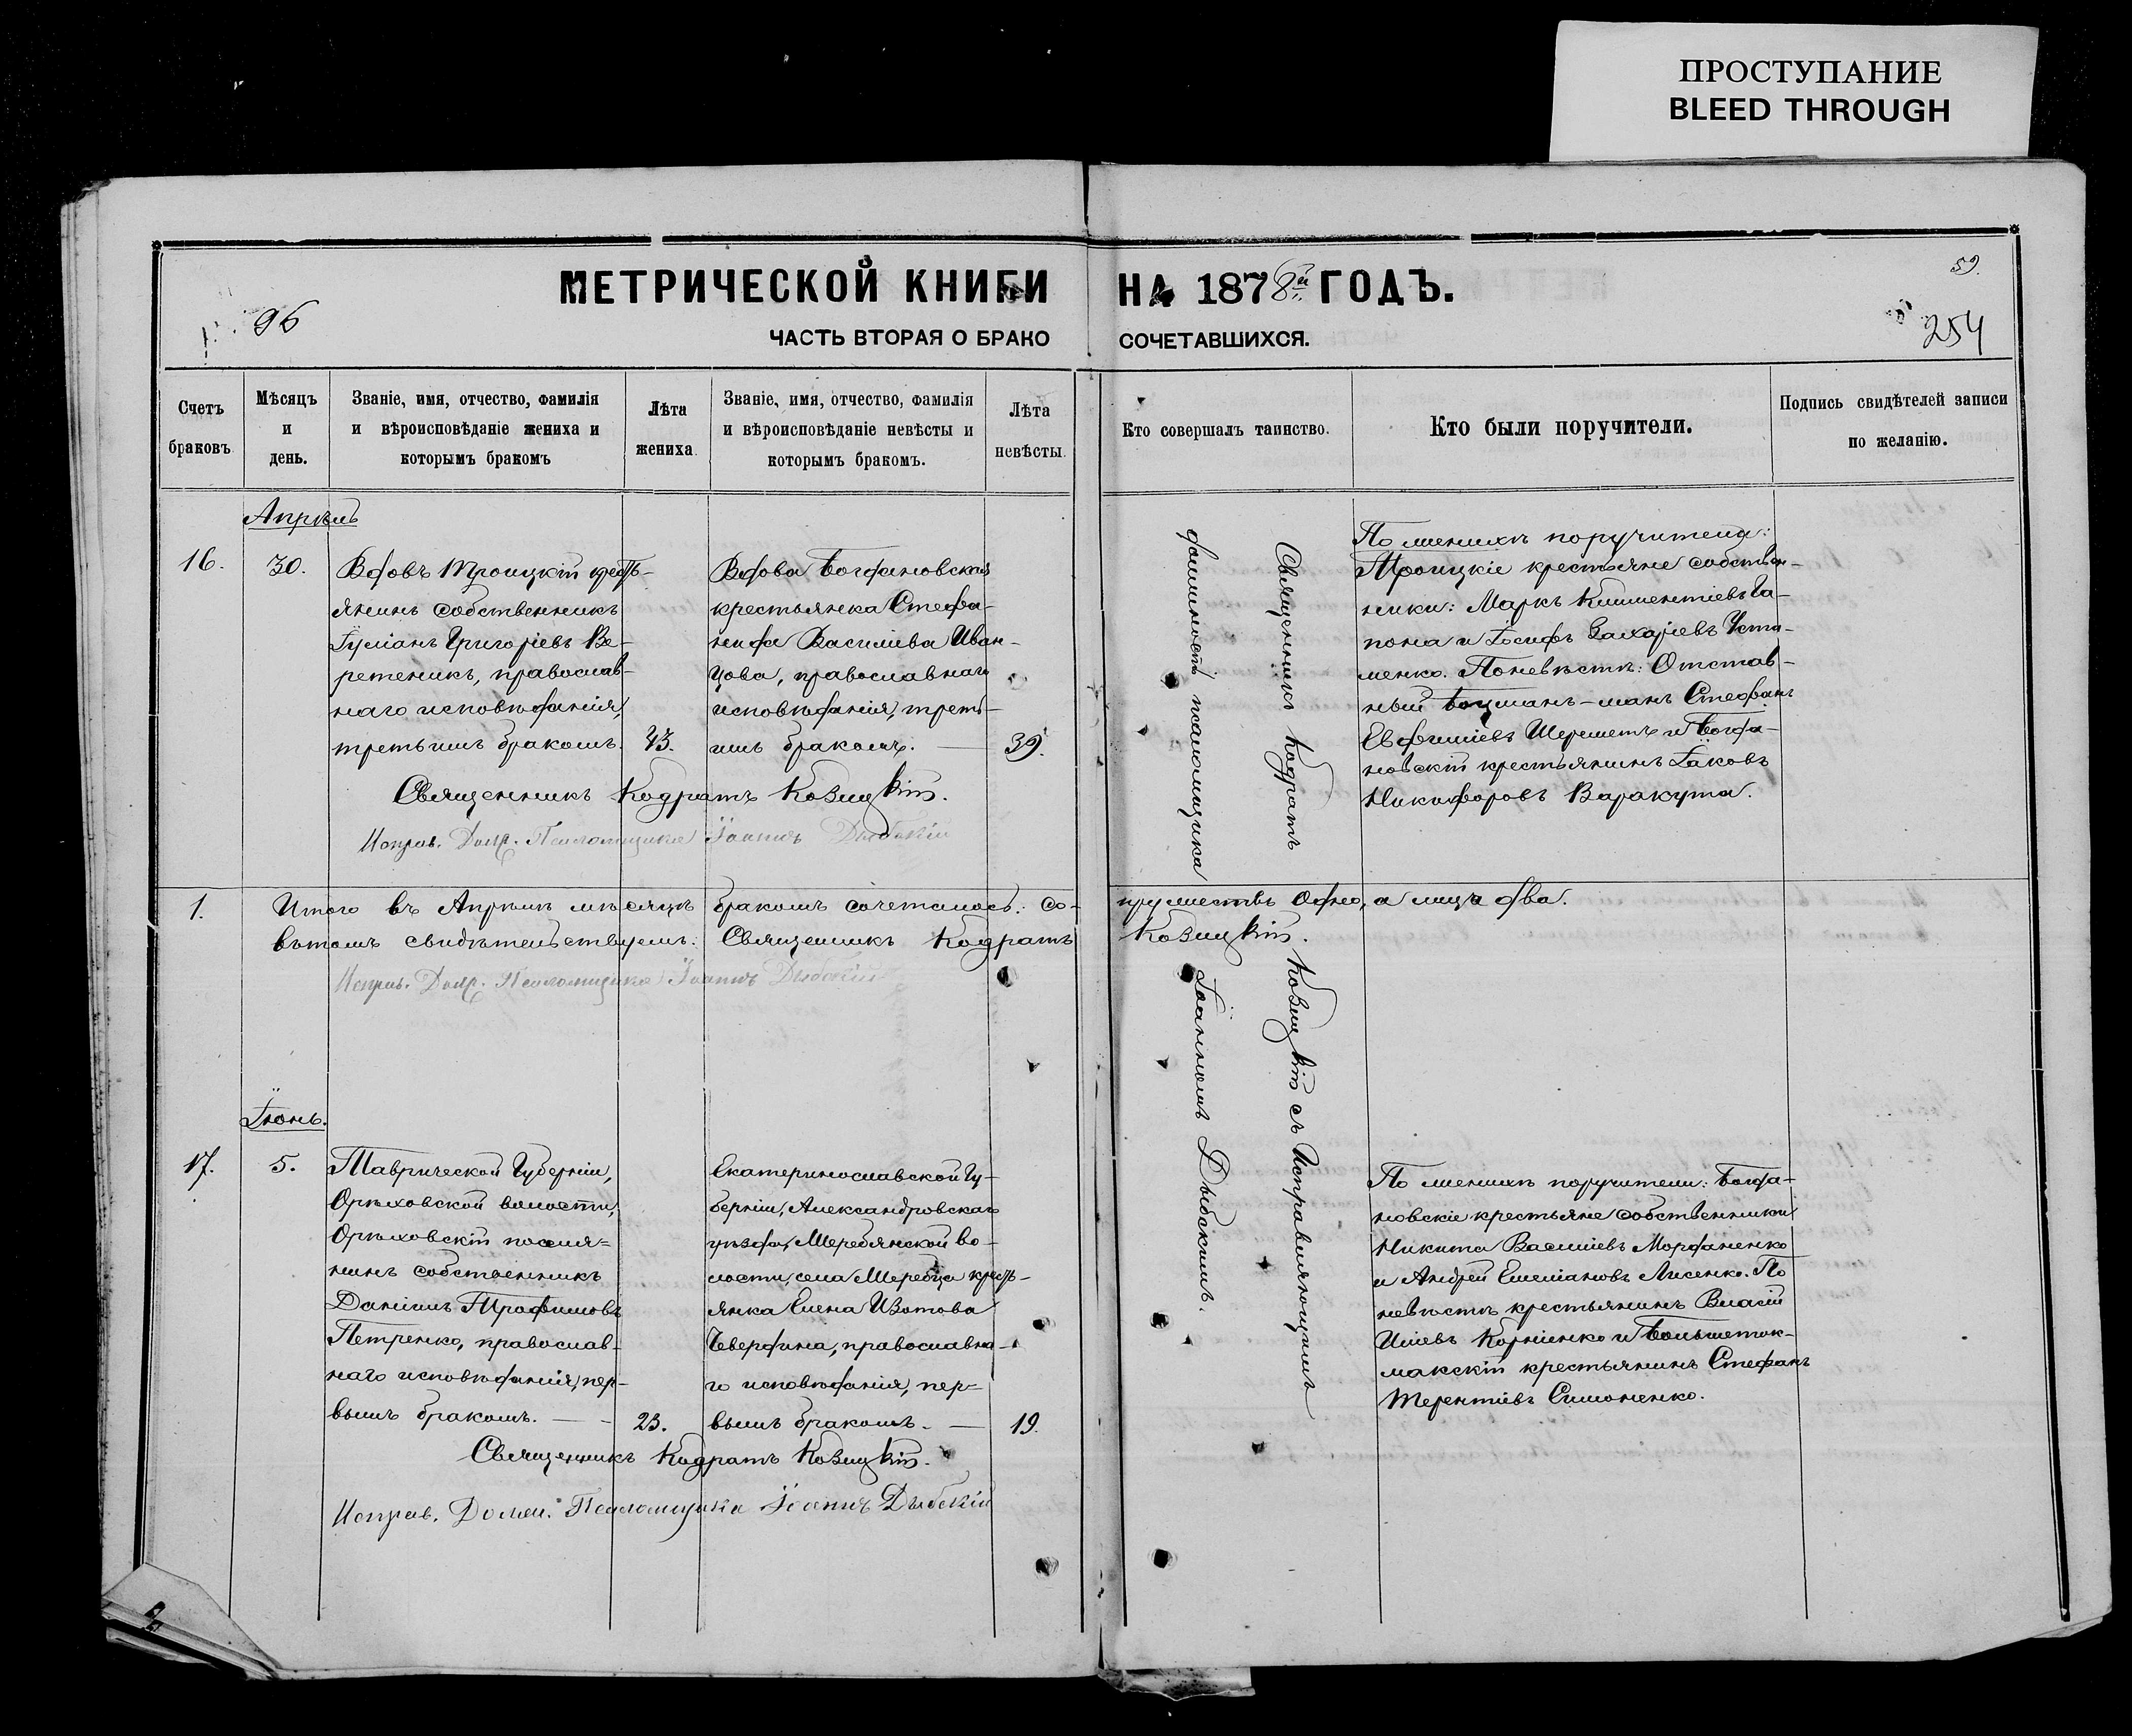 ПРОСТУПАНИЕ
BLEED THROUGH
59.
МЕТРИЧЕСКОЙ КНИГИ НА 1878й ГОДЪ.
96
254
ЧАСТЬ ВТОРАЯ О БРАКО СОЧЕТАВШИХСЯ.
Счетъ
браковъ
Мѣсяцъ
и
день.
Званіе, имя, отчество, фамилія
и вѣроисповѣданіе жениха и
которымъ бракомъ
Лѣта
жениха.
Званіе, имя, отчество, фамилія
и вѣроисповѣданіе невѣсты и
которымъ бракомъ.
Лѣта
невѣсты.
Кто совершалъ таинство.
Кто были поручители.
Подпись свидѣтелей записи
по желанію.
Апрѣль
16.
30.
Вдовъ Троицкій крест-
янинъ собственникъ
Іуліанъ Григоріевъ Ве-
ретеникъ, православ-
наго исповѣданія,
третьимъ бракомъ.
43.
Вдова Богдановская
крестьянка Стефа-
нида Василіева Иван-
цова, православнаго
исповѣданія, треть-
имъ бракомъ.
39.
Священникъ Кодратъ Козицкій.
Исправ. Долж. Псаломщика Іоаннъ Дыбскій
Священникъ Кодратъ Козицкій съ Исправляющимъ
должность псаломщика Іоанномъ Дыбскимъ.
По женихѣ поручители:
Троицкіе крестьяне собствен-
ники: Маркъ Климентіевъ Га-
пона и Іосифъ Захаріевъ Уста-
менко. По невѣстѣ: Отстав-
ный Боцманъ-манъ Стефанъ
Евфиміевъ Шереметъ и Богда-
новскій крестьянинъ Іаковъ
Никифоровъ Варакута.
1.
Итого въ Апрѣлѣ мѣсяцѣ бракомъ сочеталось: Со-
пружествъ одно, а лицъ два.
въ томъ свидѣтельствуемъ: Священникъ Кодратъ
Козицкій.
Исправ. Долж. Псаломщика Іоаннъ Дыбскій
Іюнь.
17.
5.
Таврической Губерніи,
Орѣховской волости,
Орѣховскій поселя=
нинъ собственникъ
Даніилъ Трофимовъ
Петренко, православ-
наго исповѣданія, пер-
вымъ бракомъ.
23.
Екатеринославской Гу-
берніи, Александровскаго
уѣзда, Жеребянской во-
лости, села Жеребца крест-
янка Елена Изотова
Чвердина, православна-
го исповѣданія, пер=
вымъ бракомъ.
19.
По женихѣ поручители: Богда-
новскіе крестьяне собственники
Никита Василіевъ Морданенко
и Андрей Емеліановъ Лисенко. По
невѣстѣ крестьянинъ Власій
Иліевъ Корніенко и Большеток-
макскій крестьянинъ Стефанъ
Терентіевъ Симоненко.
Священникъ Кодратъ Козицкій.
Исправ. Должн. Псаломщика Іоаннъ Дыбскій